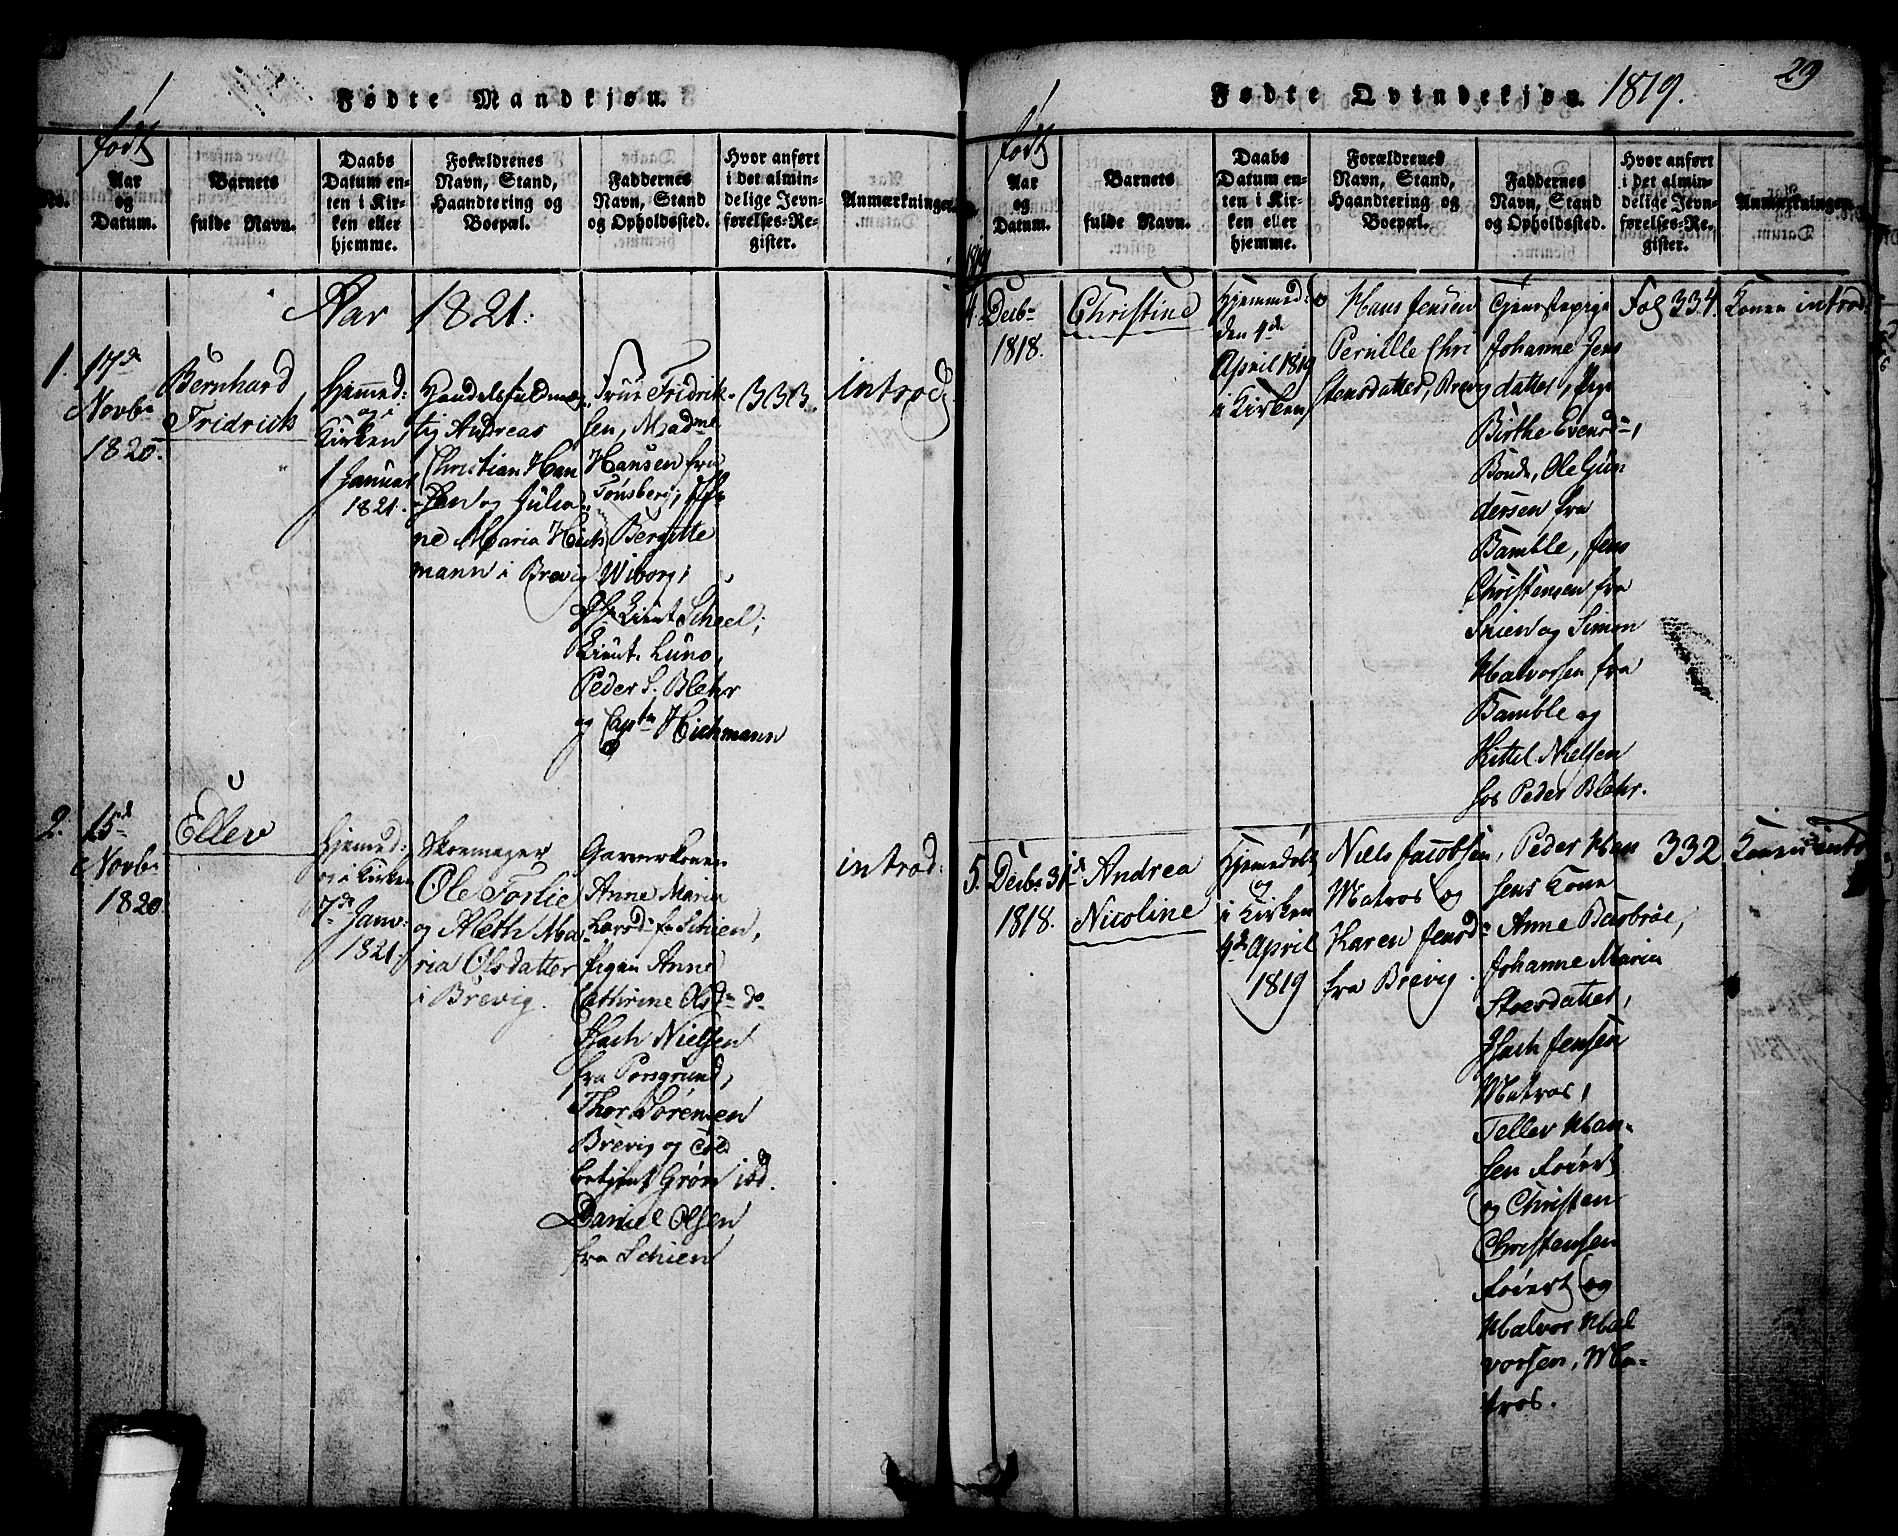 Fødte Mandkjøn.
født
No.
Aar
og
Datum.
Barnets
fulde Navn.
Daabs
Datum en-
ten i Kir-
ken eller
hjemme.
Forældrenes
Navn, Stand,
Haandtering og
Boepæl.
Faddernes
Navn, Stand
og Opholdssted.
Hvor anført
i det almin-
delige Jevn-
førelses-Re-
gister.
Anmærkninger
Aar 1821.
1.
17de
Novbr
1820.
Bernhard
Fridrich
Hjemmed:
og i
Kirken
1 Januar
1821.
Handelsfuldmæg-
tig Andreas
Christian Han
sen og Julia-
ne Maria Hich
mann i Brevig
Frue Fridrik-
sen, Madme
Hansen fra
Tønsberg, Jfr
Bergitte
Wiborg,
Hr Lieut. Scheel,
Lieut. Luno,
Peder S. Blehr
og Captn Hichmann
333.
introd.
2.
15d
Novbr
1820
Ellev
Hjemmed:
og i Kirken
7de Janv:
1821.
Skoemager
Ole Torlie
og Aleth Ma-
ria Olsdatter
i Brevig.
Garverkonen
Anne Maria
Larsd: fra Schien,
pigen Anne
Cathrine Olsdr do
Isach Nielsen
fra Porsgrund,
Thor Sörensen
Brevig og Told
betjent Grøn ibd.
Daniel Olsen
fra Schien
introd:
Fødte Qvindekjøn. 1819.
29
født
Aar
og
Datum.
Barnets
fulde Navn.
Daabs
Datum en-
ten i Kir-
ken eller
hjemme.
Forældrenes
Navn, Stand,
Haandtering og
Boepæl.
Faddernes
Navn, Stand
og Opholdssted.
Hvor anført
i det almin-
delige Jevn-
førelses-Re-
gister.
Anmærkninger
1819
4.
Decbr
1818.
Christine
Hjemmed:
den 4de
April 1819
i Kirken
Hans Jensen
Pernille Chri
stensdatter, Brevig
Tjenestepige
Johanne Jens
datter, Pige
Birthe Evensdr,
Bonde, Ole Gun
dersen fra
Bamble, Jens
Christensen fra
Skien og Simon
Halvorsen fra
Bamble og
Kittel Nielsen
hos Peder Blehr.
Fol 334.
Konen introd.
5.
Decbr 31te
1818.
Andrea
Nicoline
Hjemmedøbt
og
i Kirken
4de April
1819
Niels Jacobsen,
Matros og
Karen Jensdr
fra Brevig.
Peder Han
sens Kone
Anne Basbröe,
Johanne Maria
Isach Jensen
Matros,
Teller Han-
sen
og Christen
Christensen
og
Halvor Hal
vorsen, Ma-
tros.
332
Konen introd